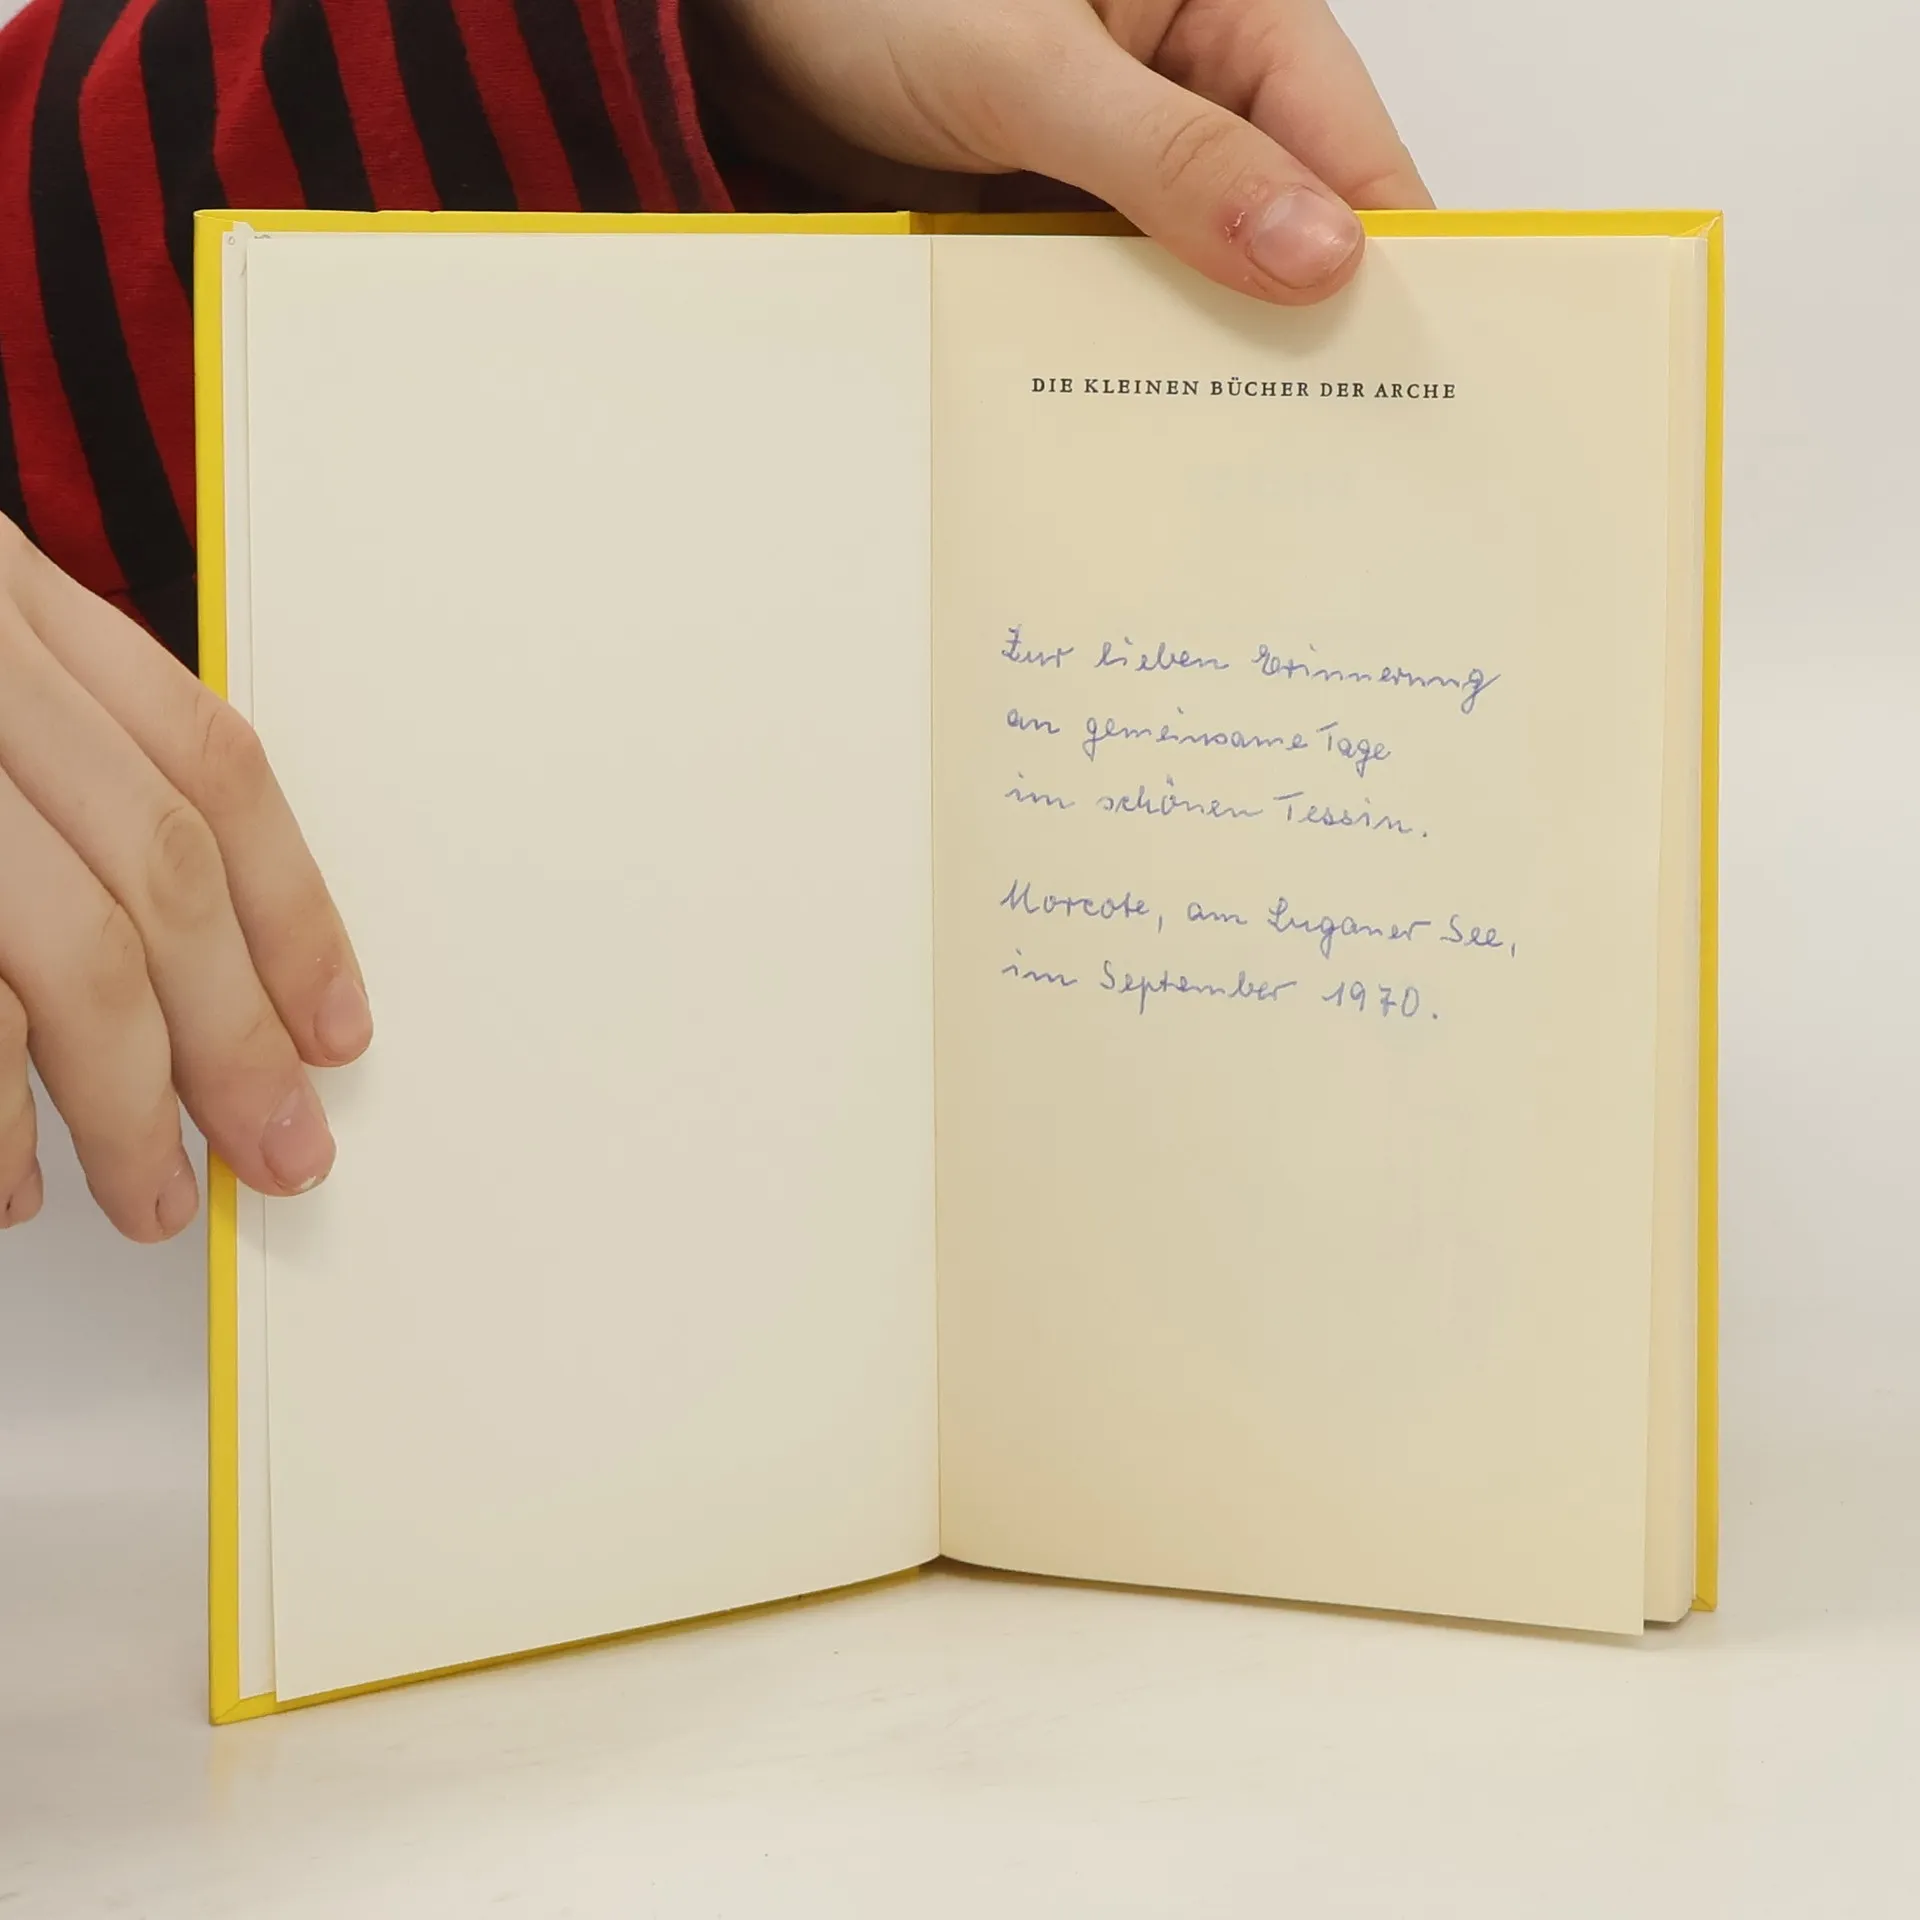 DIE KLEINEN BÜCHER DER ARCHE
Zur lieben Erinnerung
an gemeinsame Tage
im schönen Tessin.
Morcote, am Luganer See,
im September 1970.